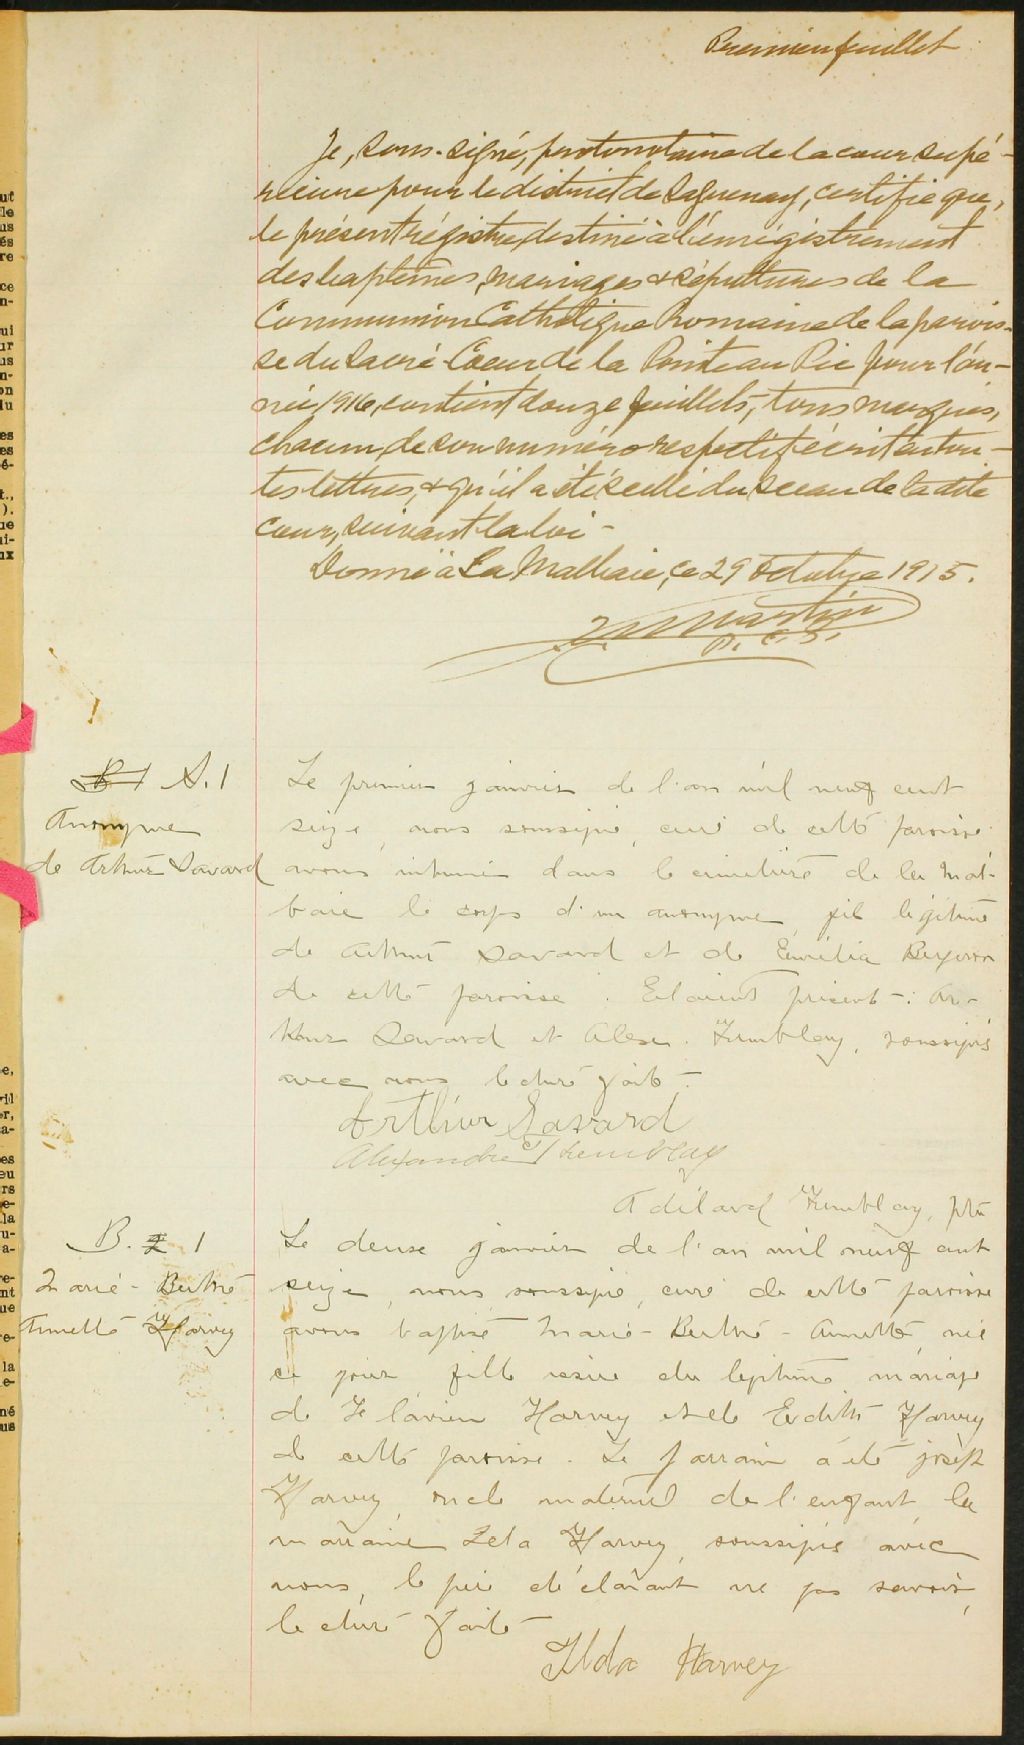 Premier feuillet
Je, sous-signé, protonotaire de la cour supé-
rieure pour le district de Saguenay, certifie que,
le présent régistre, destiné à l'enrégistrement
des baptêmes, mariages & sépultures de la
Communion Catholique Romaine de la parois-
se du Sacré Coeur de la Pointe au Pic pour l'an-
née 1916, contient douze feuillets, tous marqués,
chacun, de son numéro respectif écrit en tou-
tes lettres, & qu'il a été scellé du sceau de la dite
cour, suivant la loi -
Donné à La Malbaie, ce 29 octobre 1915.
Martin
P. C. S.
B 1 S. 1
Anonyme
de Arthur Savard
Le premier janvier de l'an mil neuf cent
seize, nous soussigné, curé de cette paroisse
avons inhumé dans le cimetière de la Mal-
baie le corps d'un anonyme, fils légitime
de Arthur Savard et de Emélia Bergeron
de cette paroisse. Etaient présent-: Ar-
thur Savard et Alex. Tremblay, soussignés
avec nous, lecture faite -
Arthur Savard
Alexandre Tremblay
Adélard Tremblay, ptre
B. 2 1
Marie-Berthe
Annette Harvey
Le deuxe janvier de l'an mil neuf cent
seize, nous, soussigné, curé de cette paroisse
avons baptisé Marie-Berthe-Annette, née
ce jour, fille issue du légitime mariage
de Flavien Harvey et de Edith Harvey
de cette paroisse. Le parrain a été joseph
Harvey, oncle maternel de l'enfant, la
marraine Ilda Harvey, soussignés avec
nous, le père déclarant ne pas savoir,
lecture faite -
Ilda Harvey